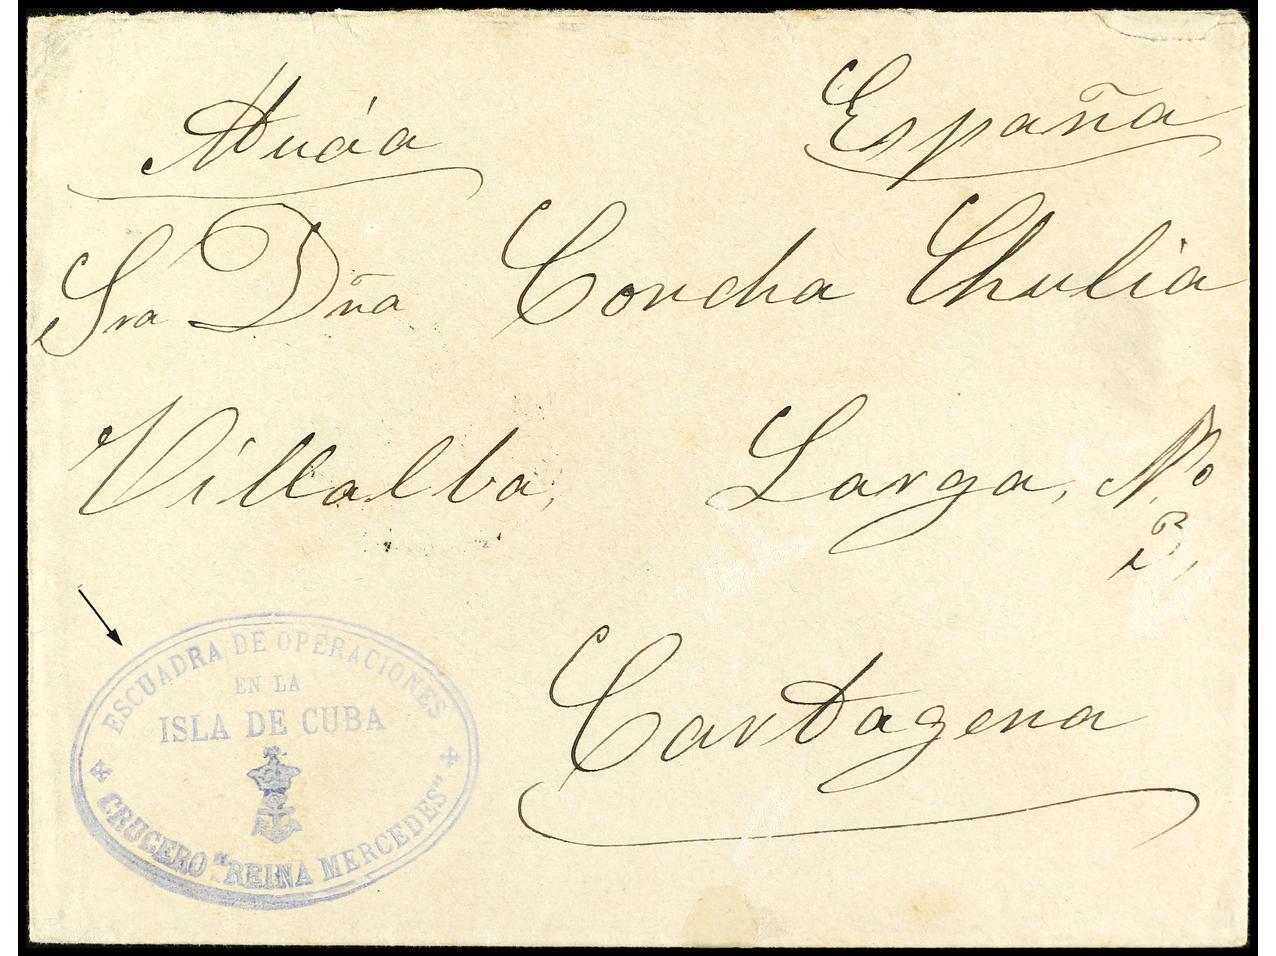 Murcia España
Sra Dña Concha Chulia
Villalba, Larga, No
3,
Cartagena
ESCUADRA DE OPERACIONES
EN LA
ISLA DE CUBA
CRUCERO "REINA MERCEDES"